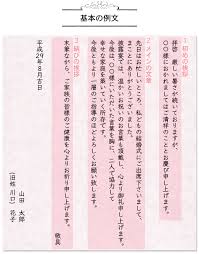 基本の例文
1 初めの挨拶
拝啓 厳しい暑さが続いておりますが、
皆様におかれましては一層のご活躍のこととお慶び申し上げます。
2 メインの文章
先日はお忙しいところ、私どもの結婚式にご出席下さいまして、
まことにありがとうございました。
披露宴では、温かいお祝いのお言葉も頂戴し、心より御礼申し上げます。
今後は○○様にいただいたお言葉を胸に、二人で協力して
幸せな家庭を築いていく所存です。
今後ともより一層のご指導のほどよろしくお願い致します。
3 結びの挨拶
末筆ながら、ご家族の皆様のご健康を心よりお祈り申し上げます。
敬具
平成29年8月吉日
山田 太郎
(旧姓 川口) 花子